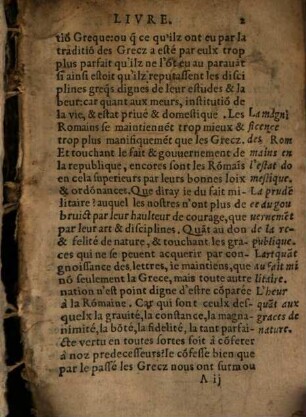 LIVRE. 2
tiõ Greque: ou q̃ ce qu'ilz ont eu par la
traditiõ des Grecz a esté par eulx trop
plus parfait qu'ilz ne l'õt eu au parauāt
si ainsi estoit qu'ilz reputassent les disci
plines greq̃s dignes de leur estudes & la
beur: car quant aux meurs, institutiõ de
la vie, & estat priué & domestique. Les
Romains se maintiennẽt trop mieux &
plus manifiquemẽt que les Grecz.
Et touchant le fait & gouuernement de
la republique, encores sont les Rõmaīs
en cela superieurs par leurs bonnes loix
& ordõnances. Que diray ie du fait mi-
litaire? auquel les nostres n'ont plus de
bruict par leur haulteur de courage, que
par leur art & disciplines. Quãt au don
& felité de nature, & touchant les gra-
ces qui ne se peuent acquerir par con-
gnoissance des lettres, ie maintiens, que
nõ seulement la Grece, mais toute autre
nation n'est point digne d'estre cõparée
à la Rõmaine. Car qui sont ceulx des-
quelx la grauité, la constance, la magna-
nimité, la bõté, la fidelité, la tant parfai-
cte vertu en toutes sortes soit à cõferer
à noz predecesseurs? Ie cõfesse bien que
par le passé les Grecz nous ont surmou
A ij
La mãgni
ficence
des Rom
mains en
l'estat do
mestique.
La prudē
ce du gou
uernemēt
de la re-
publique.
L'art quāt
au fait mi
litaire.
L'heur
quāt aux
graces de
nature.